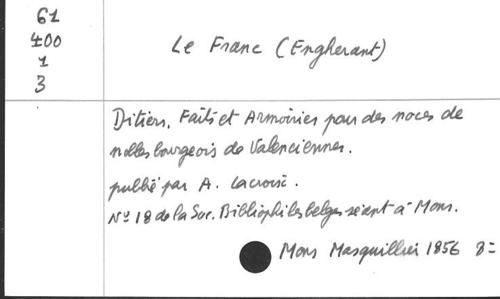 61
400
1
3
Le Franc (Engherant)
Ditiers, Faits et Armoiries pour des noces de
nobles bourgeois de Valenciennes.
publié par A. Lacroix.
No 18 de la Soc. Bibliophiles belges séant à Mons.
Mons Masquillier 1856 8=